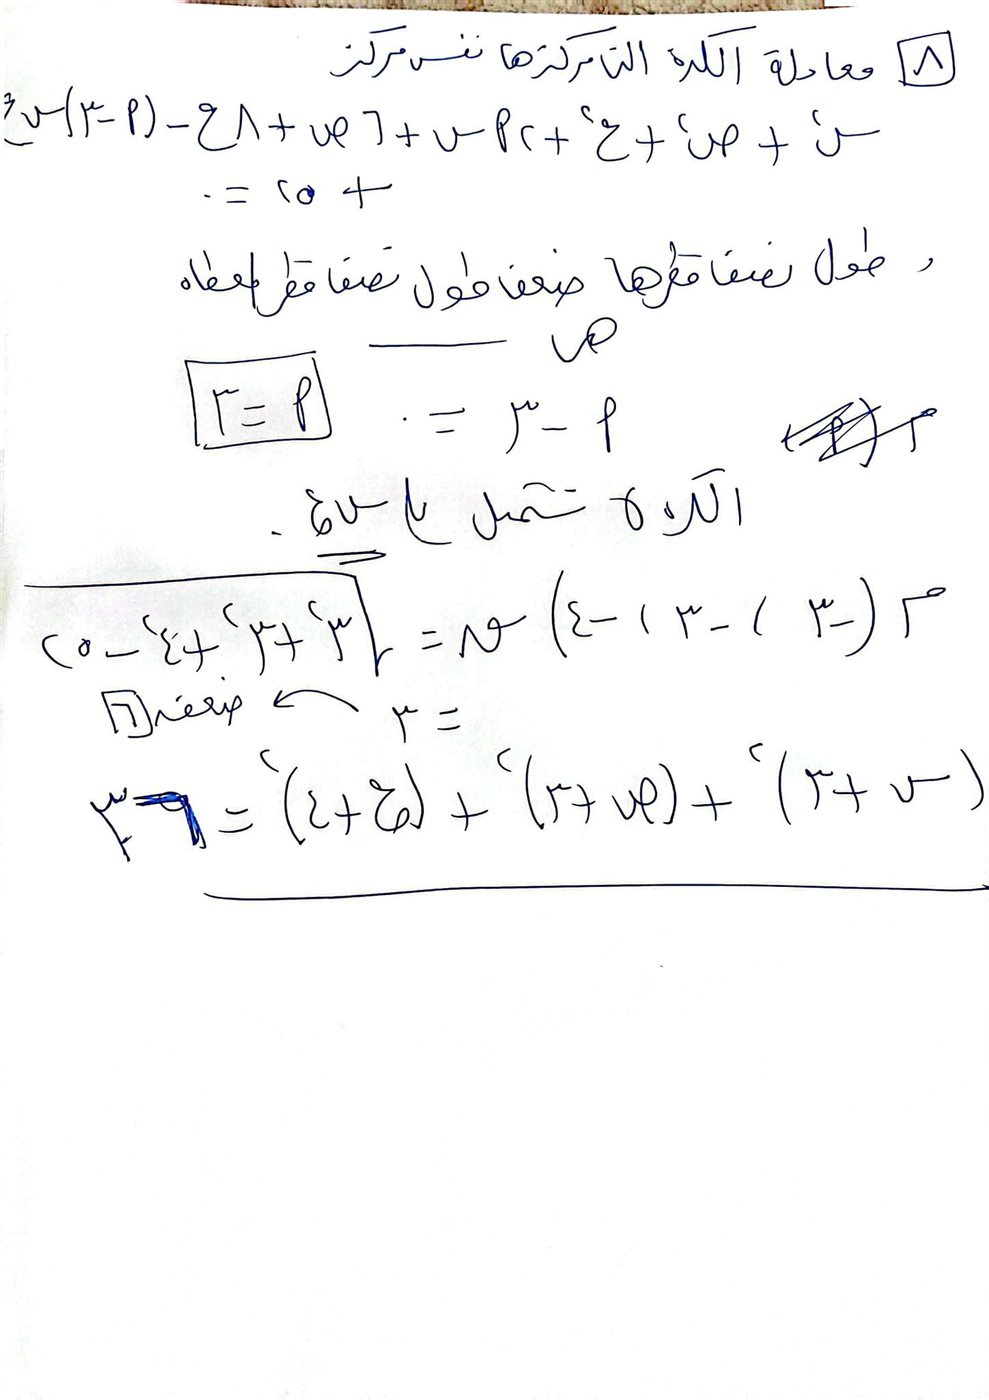 ٨ معادلة الكرة التى مركزها نفس مركز
س٢ + ص٢ + ع٢ + ٢أس + ٦ص + ٨ع − (أ−٣)س ع
+ ٢٥ = ٠
، طول نصف قطرها ضعف طول نصف قطر المعطاه
ص
أ − ٣ = ٠ أ = ٣
الكرة لا تشمل على س ع .
م (−٣ ، −٣ ، −٤) نق = √٣٢ + ٣٢ + ٤٢ − ٢٥
= ٣ ← ضعفه ٦
(س + ٣)٢ + (ص + ٣)٢ + (ع + ٤)٢ = ٣٦